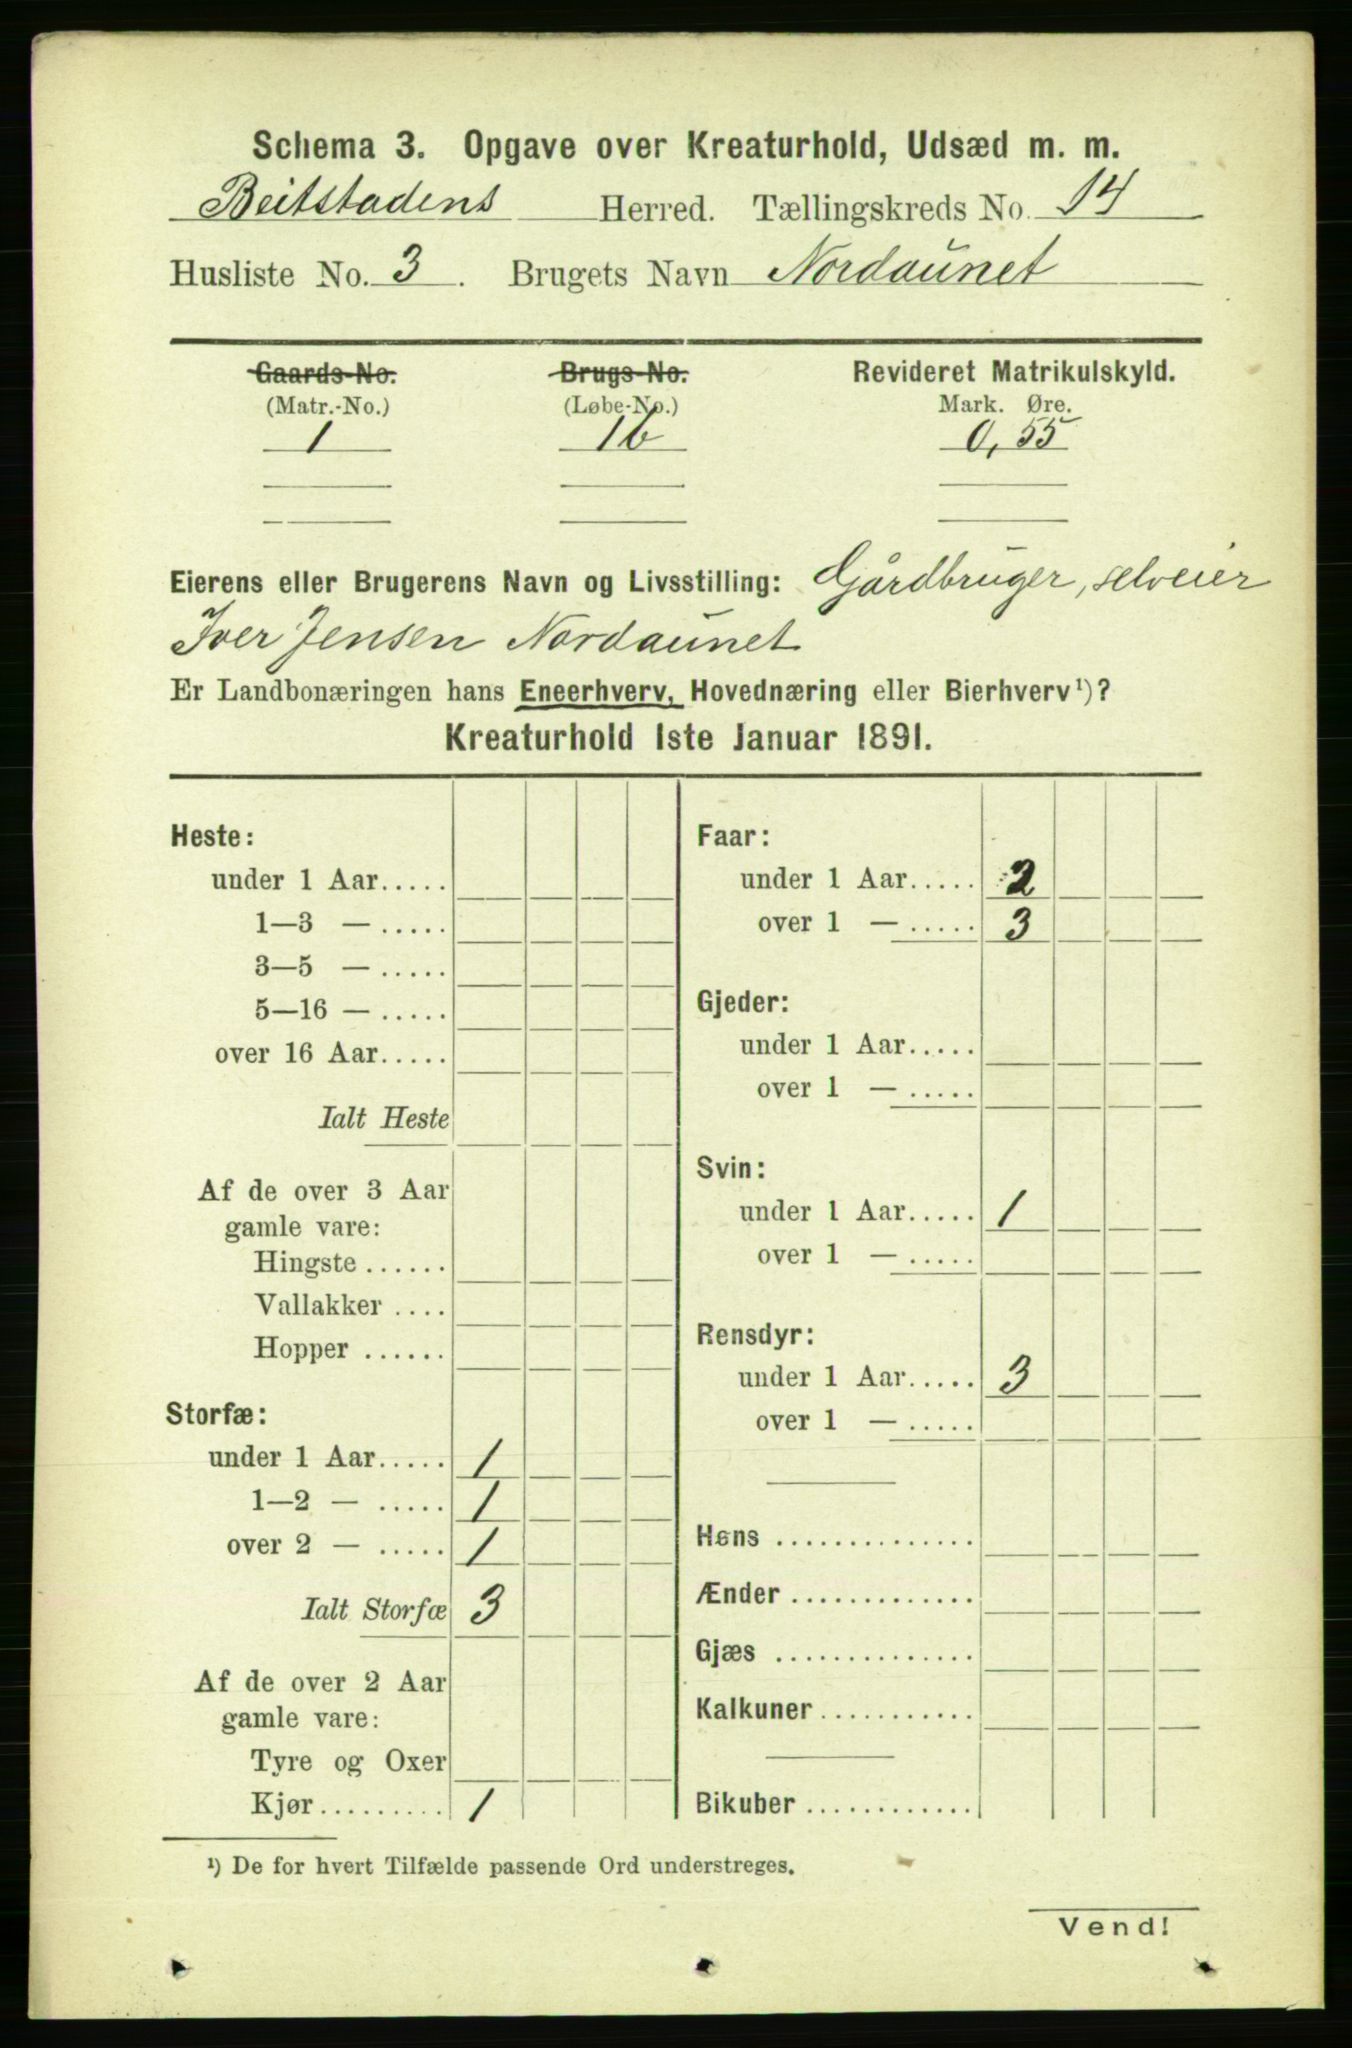 Schema 3. Opgave over Kreaturhold, Udsæd m. m.
Beitstadens Herred. Tællingskreds No. 14
Husliste No. 3. Brugets Navn Nordaunet
Gaards-No. Brugs-No. Revideret Matrikulskyld.
(Matr.-No.) (Løbe-No.) Mark. Øre.
1 16 0,55
Eierens eller Brugerens Navn og Livsstilling: Gårdbruger, selveier
Iver Jensen Nordaunet
Er Landbonæringen hans Eneerhverv, Hovednæring eller Bierhverv¹)?
Kreaturhold 1ste Januar 1891.
Heste:
under 1 Aar.....
1—3 — .....
3—5 — .....
5—16 — .....
over 16 Aar.....
Ialt Heste
Af de over 3 Aar
gamle vare:
Hingste ......
Vallakker ....
Hopper ......
Storfæ:
under 1 Aar..... 1
1—2 — ..... 1
over 2 — ..... 1
Ialt Storfæ 3
Af de over 2 Aar
gamle vare:
Tyre og Oxer
Kjør......... 1
Faar:
under 1 Aar..... 2
over 1 — ..... 3
Gjeder:
under 1 Aar.....
over 1 — .....
Svin:
under 1 Aar..... 1
over 1 — .....
Rensdyr:
under 1 Aar..... 3
over 1 — .....
Høns ..............
Ænder .............
Gjæs ..............
Kalkuner...........
Bikuber ............
¹) De for hvert Tilfælde passende Ord understreges.
Vend!